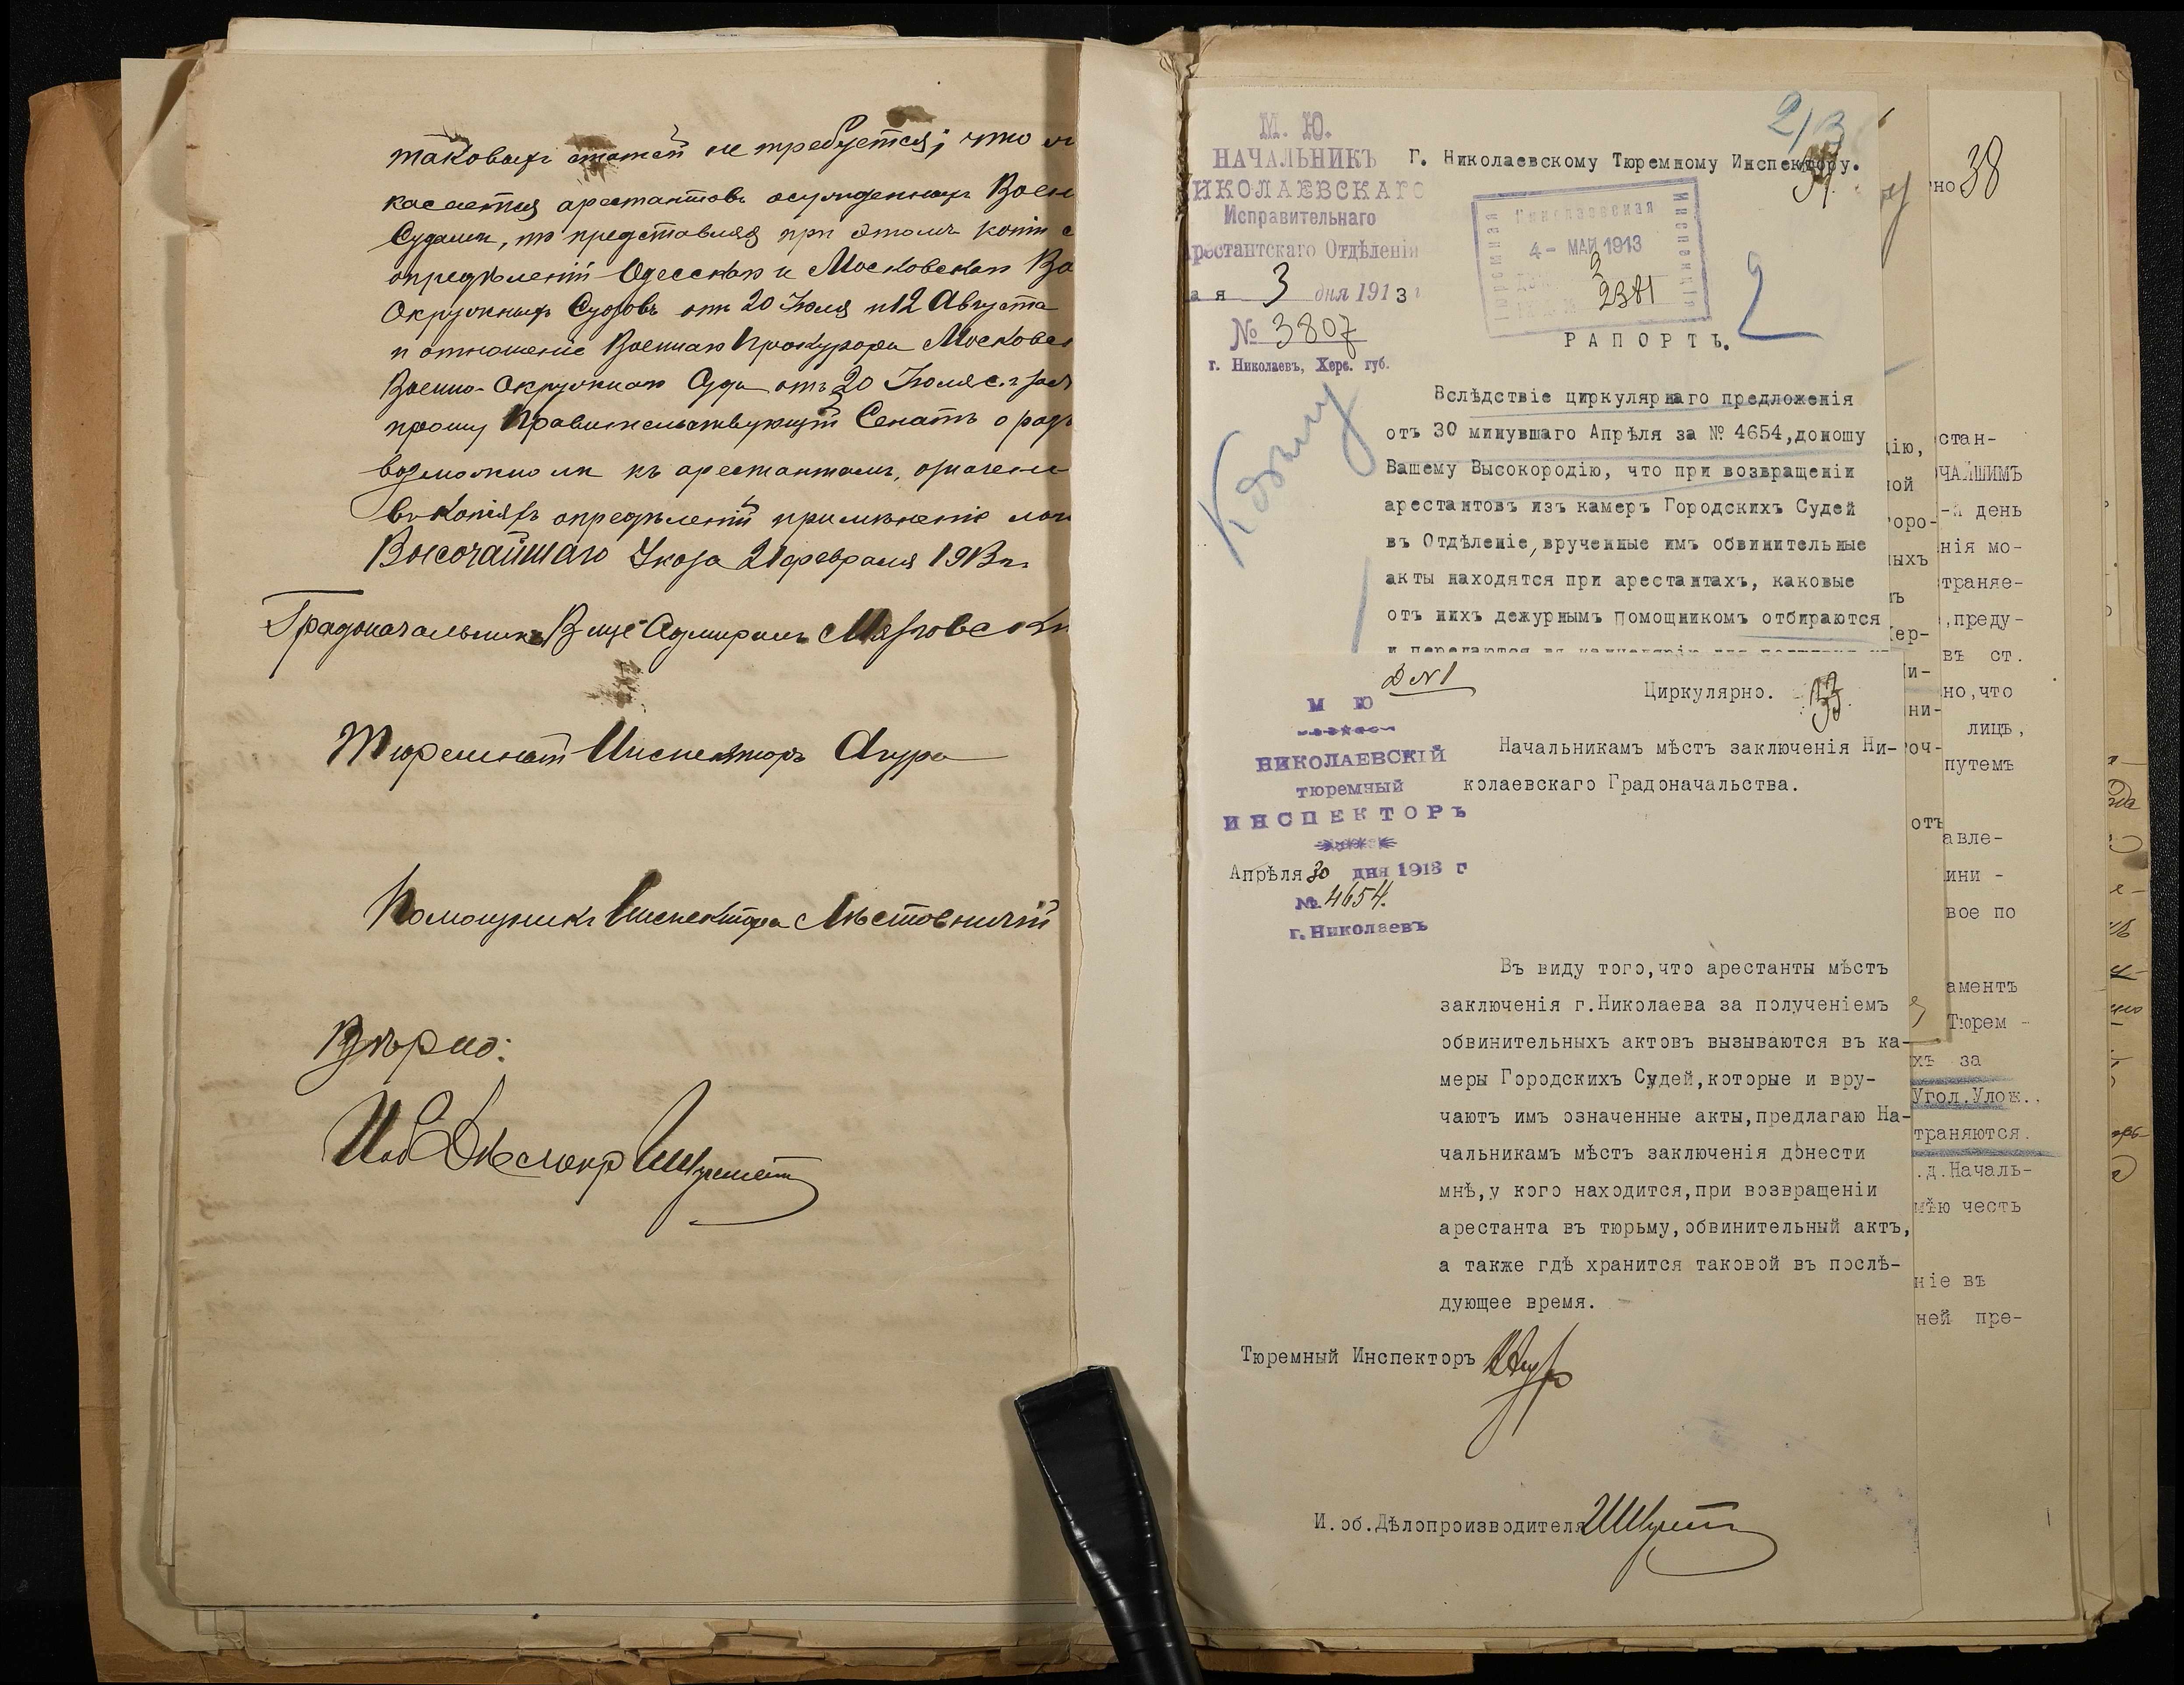 таковыхъ статей не требуется; что
касается арестантовъ осужденныхъ Воен
Судами, то представляя при этомъ копіи
опредѣленій Одесскаго и Московскаго Во
Окружныхъ Судовъ отъ 20 Іюля и 12 Августа
и отношеніе Военнаго Прокурора Московск
Военно-Окружнаго Суда отъ 20 Іюля с.г.
прошу Правительствующій Сенатъ о
возможно ли къ арестантамъ, означен
въ копіяхъ опредѣленій примѣненіе
Высочайшаго Указа 21 февраля 1913 г.
Градоначальникъ Вице Адмиралъ Мязговск
Тюремный Инспекторъ Агура
Помощникъ Инспектора Мѣстовничій
Вѣрно:
М. Ю.
НАЧАЛЬНИКЪ
ИКОЛАЕВСКАГО
Исправительнаго
рестантскаго Отдѣленія
а я 3 дня 1913 г
№ 3807
г. Николаевъ, Херс. губ.
2/3
Г. Николаевскому Тюремному Инспектору.
Николаевская
Тюремная
Инспекція
4 - МАЙ 1913
2381
2
РАПОРТЪ.
Вслѣдствіе циркулярнаго предложенія
отъ 30 минувшаго Апрѣля за № 4654, доношу
Вашему Высокородію, что при возвращеніи
арестантовъ изъ камеръ Городскихъ Судей
въ Отдѣленіе, врученные имъ обвинительные
акты находятся при арестантахъ, каковые
отъ нихъ дежурнымъ Помощникомъ отбираются
Къ дѣлу
Д №1
М Ю
НИКОЛАЕВСКІЙ
тюремный
ИНСПЕКТОРЪ
Апрѣля 30 дня 1913 г
№ 4654.
г. Николаевъ
Циркулярно.
Начальникамъ мѣстъ заключенія Ни-
колаевскаго Градоначальства.
Въ виду того, что арестанты мѣстъ
заключенія г.Николаева за полученіемъ
обвинительныхъ актовъ вызываются въ ка-
меры Городскихъ Судей, которые и вру-
чаютъ имъ означенные акты, предлагаю На-
чальникамъ мѣстъ заключенія донести
мнѣ, у кого находится, при возвращеніи
арестанта въ тюрьму, обвинительный актъ,
а также гдѣ хранится таковой въ послѣ-
дующее время.
Тюремный Инспекторъ
И.об.Дѣлопроизводителя
но 38
дію,
ной
оро-
ныхъ
ер-
и-
ни-
оч-
отъ
стан-
ЧАЙШИМЪ
-й день
нія мо-
траняе-
,преду-
въ ст.
но,что
лицъ,
путемъ
авле-
ини -
вое по
аментъ
Тюрем -
хъ за
Угол.Улож..
траняются.
.д.Началь-
мѣю честь
ніе въ
ней пре-